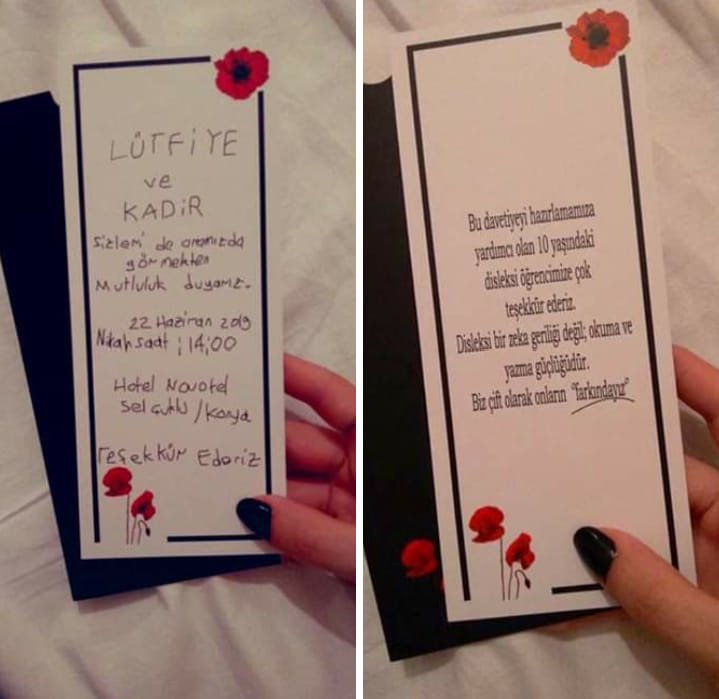 LÜTFİYE
ve
KADİR
sizleri de aramızda
görmekten
Mutluluk duyarız.
22 Haziran 2019
Nikah saat : 14:00
Hotel Novotel
Selçuklu / Konya
Teşekkür Ederiz
Bu davetiyeyi hazırlamamıza
yardımcı olan 10 yaşındaki
disleksi öğrencimize çok
teşekkür ederiz.
Disleksi bir zeka geriliği değil; okuma ve
yazma güçlüğüdür.
Biz çift olarak onların "farkındayız"